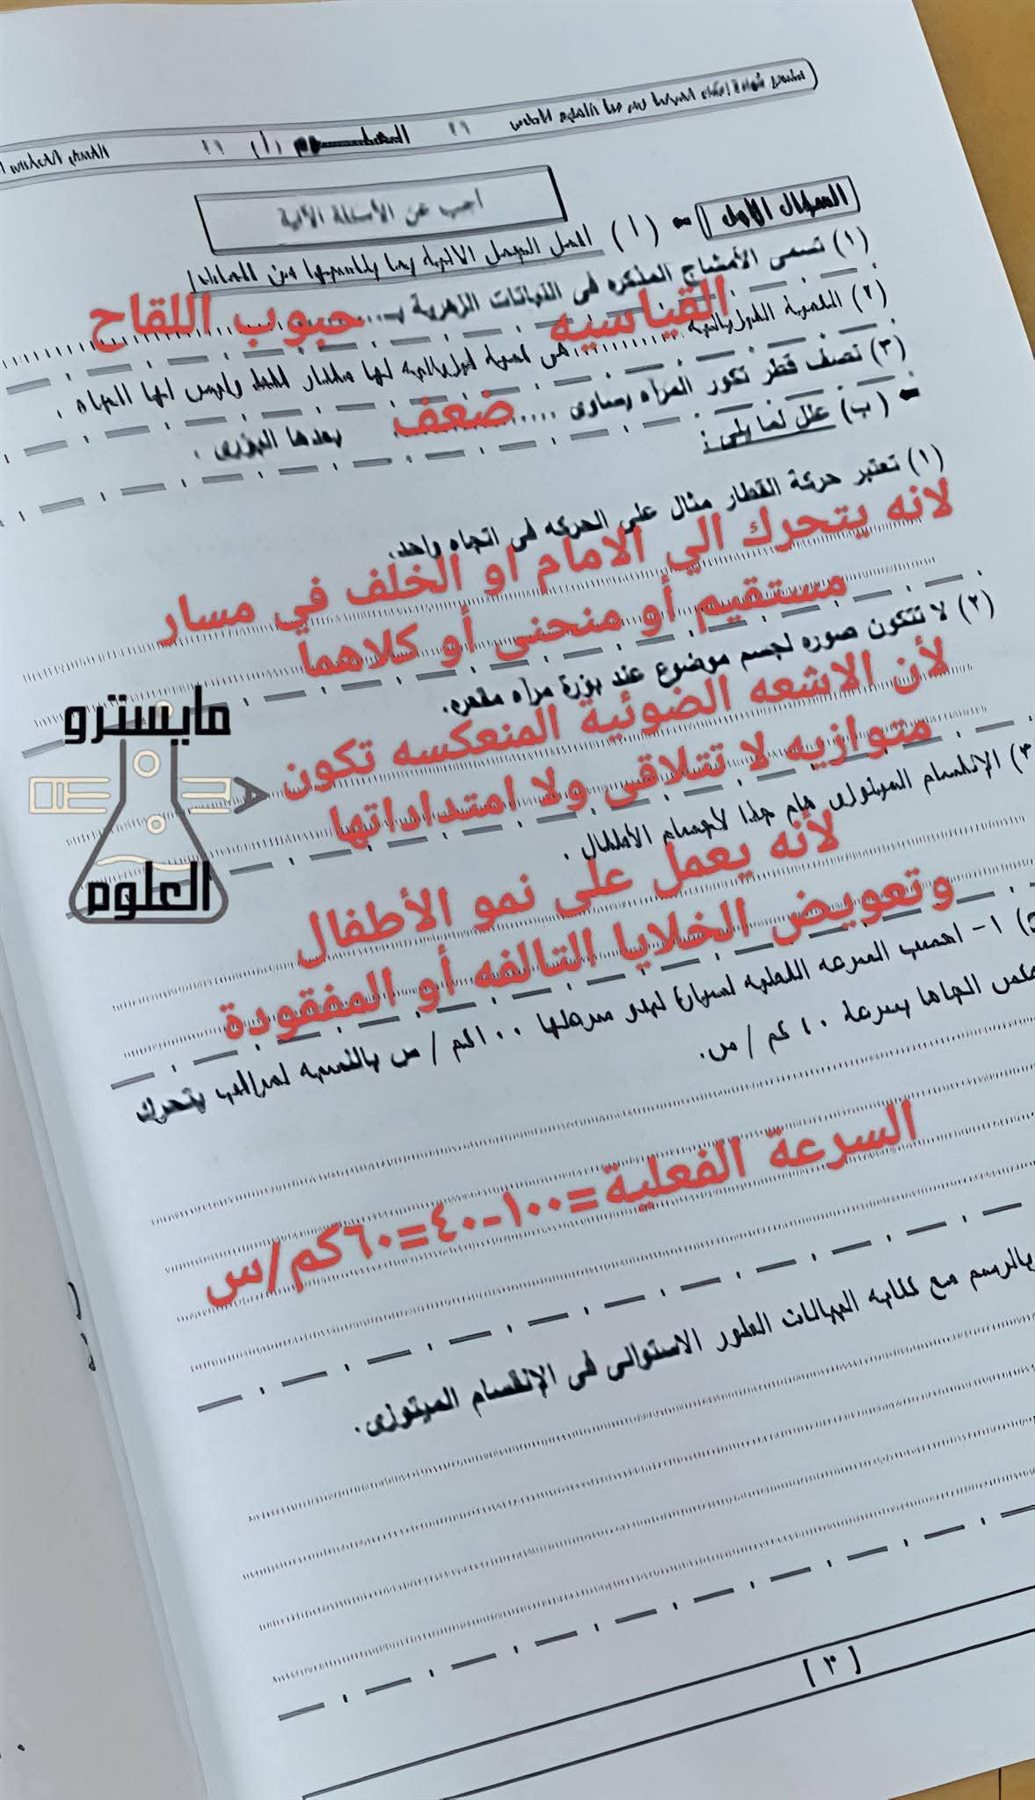 العلوم (أ)
أجب عن الأسئلة الآتية
السؤال الأول - (أ) أكمل
(١) تسمى الأمشاج المذكره فى النباتات الزهرية بـ...... حبوب اللقاح
(٢) الكمية الفيزيائية القياسيه هى كمية فيزيائية لها مقدار فقط وليس لها اتجاه .
(٣) نصف قطر تكور المرآه يساوى ...... ضعف بعدها البؤرى .
- (ب) علل لما يلى :
(١) تعتبر حركة القطار مثال على الحركه فى اتجاه واحد.
لانه يتحرك الي الامام او الخلف في مسار
مستقيم أو منحنى أو كلاهما
(٢) لا تتكون صوره لجسم موضوع عند بؤرة مرآه مقعره.
لأن الاشعه الضوئية المنعكسه تكون
متوازيه لا تتلاقى ولا امتداداتها
الإنقسام الميتوزى هام جدا لأجسام الأطفال .
لأنه يعمل على نمو الأطفال
وتعويض الخلايا التالفه أو المفقودة
١- احسب السرعه الفعليه لسيارة تبدو سرعتها ١٠٠كم / س بالنسبه لمراقب يتحرك
عكس اتجاها بسرعة ٤٠ كم / س.
السرعة الفعلية=١٠٠-٤٠=٦٠كم/س
بالرسم مع كتابه البيانات الطور الاستوائى فى الإنقسام الميتوزى.
مايسترو
العلوم
[ ٣ ]